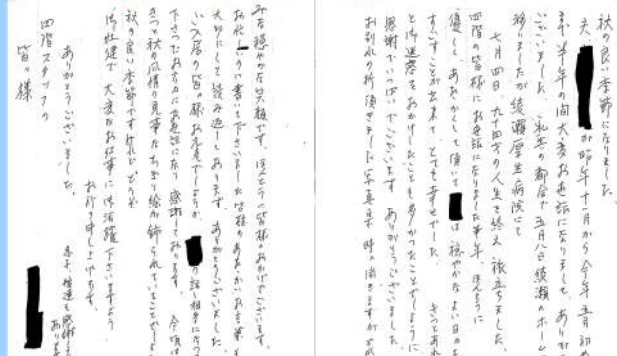 秋の良い季節になりました。
夫 が昨年十一月から今年五月初め
まで半年の間大変お世話になりまして、ありが
ございました。私共の都合で五月八日綾瀬のホーム
移りましたが綾瀬厚生病院にて
七月四日 九十四才の人生を終え 旅立ちました。
四階の皆様にお世話になりました半年、ほんとうに
優しく、あたたかくして頂いて は穏やかなよい日々
すごすことが出来て、とても幸せでした。 きっとあれ
とご迷惑をおかけしたことも多かったことでしょうに
感謝でいっぱいでございます。ありがとうございました。
お別れの折頂きました写真を 時々開きますが
みな穏やかな笑顔です。ほんとうに皆様のおかげでございます。
お忙しいのに書いて下さいました皆様のあたたかいお言葉も
大切にして読み返しております。ありがとうございます。
ご入居の皆々様お元気でしょうか。 の話し相手になって
下さったお方々にお世話になり感謝しております。 今頃は
きっと秋の風情の見事なちぎり絵が飾られていることでしょ
秋の良い季節ですけれど どうぞ
ご健康で 大変なお仕事に ご活躍下さいますよう
お祈り申し上げます。
ありがとうございました。
息子、娘達も感謝して
おります
四階スタッフの
皆々様